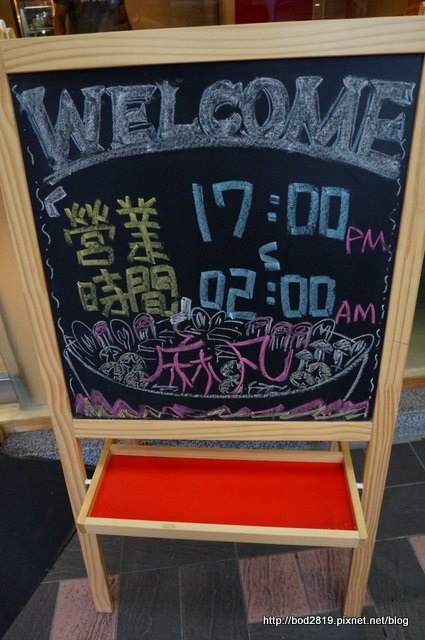 WELCOME
營業時間
17:00 PM
~
02:00 AM
麻丸
http://bod2819.pixnet.net/blog